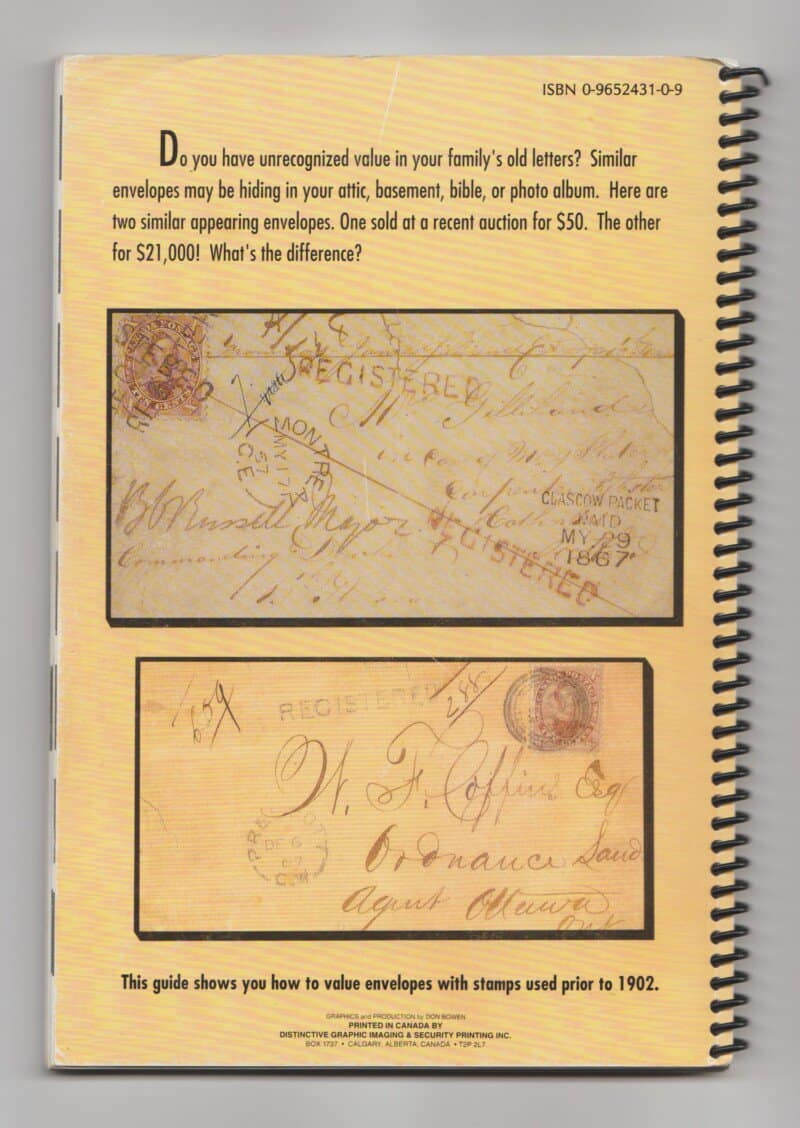 ISBN 0-9652431-0-9
Do you have unrecognized value in your family's old letters? Similar
envelopes may be hiding in your attic, basement, bible, or photo album. Here are
two similar appearing envelopes. One sold at a recent auction for $50. The other
for $21,000! What's the difference?
REGISTERED
Mr Gilliland
MONTREAL
MY 17
57
C.E
GLASCOW PACKET
PAID
MY 29
1867
Russell Major
Commanding
REGISTERED
659
REGISTERED
288
W. F. Coffin Esq
DE 6
67
C.W
Ordnance Land
Agent Ottawa
Ont
This guide shows you how to value envelopes with stamps used prior to 1902.
GRAPHICS and PRODUCTION by DON BOWEN
PRINTED IN CANADA BY
DISTINCTIVE GRAPHIC IMAGING & SECURITY PRINTING INC.
BOX 1737 • CALGARY, ALBERTA, CANADA • T2P 2L7